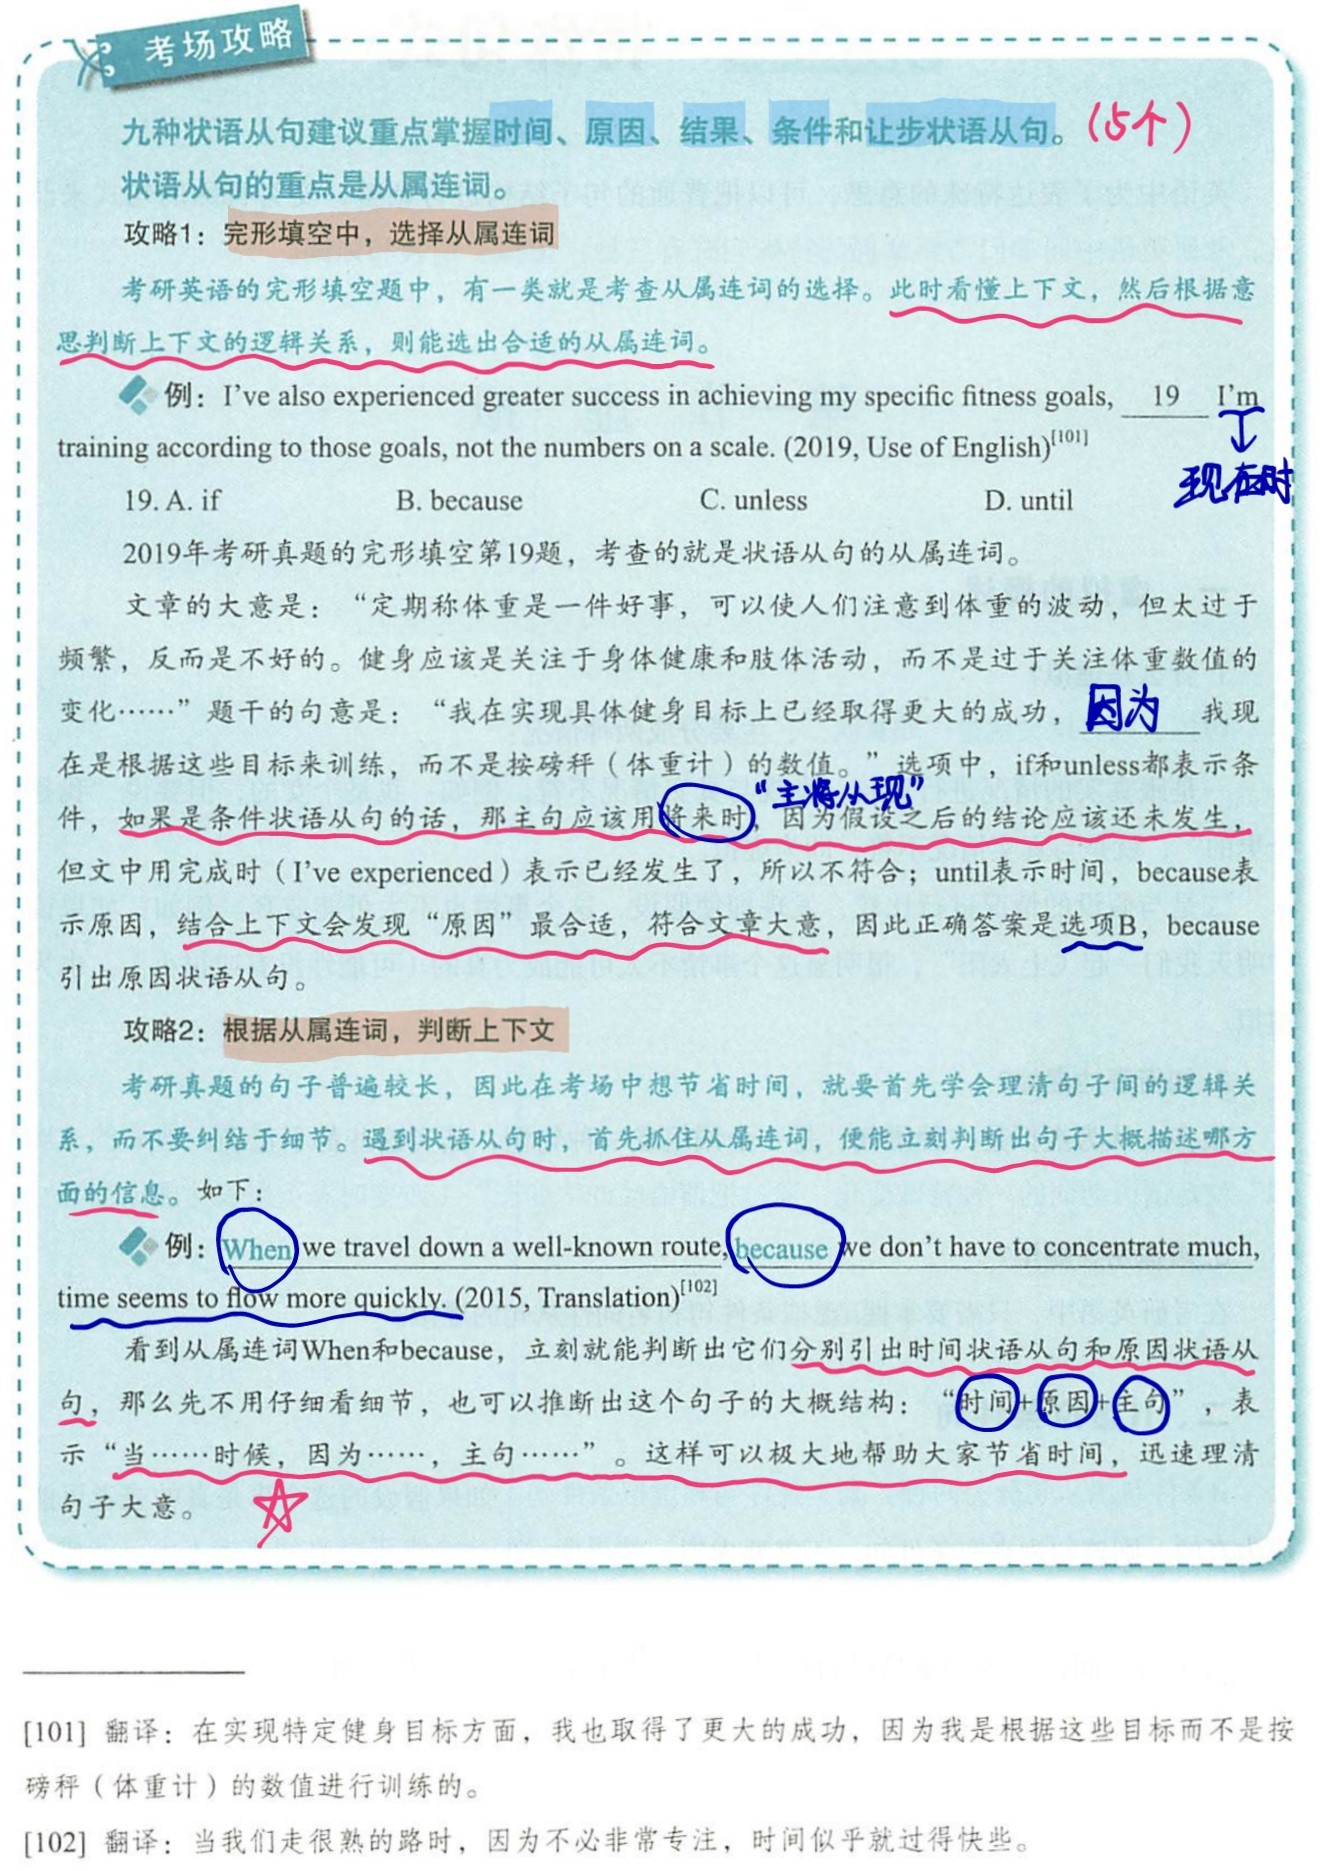 考场攻略
九种状语从句建议重点掌握时间、原因、结果、条件和让步状语从句。(5个)
状语从句的重点是从属连词。
攻略1：完形填空中，选择从属连词
考研英语的完形填空题中，有一类就是考查从属连词的选择。此时看懂上下文，然后根据意
思判断上下文的逻辑关系，则能选出合适的从属连词。
例：I've also experienced greater success in achieving my specific fitness goals, 19 I'm
training according to those goals, not the numbers on a scale. (2019, Use of English)[101]
现在时
19. A. if B. because C. unless D. until
2019年考研真题的完形填空第19题，考查的就是状语从句的从属连词。
文章的大意是：“定期称体重是一件好事，可以使人们注意到体重的波动，但太过于
频繁，反而是不好的。健身应该是关注于身体健康和肢体活动，而不是过于关注体重数值的
变化……”题干的句意是：“我在实现具体健身目标上已经取得更大的成功，因为我现
在是根据这些目标来训练，而不是按磅秤（体重计）的数值。”选项中，if和unless都表示条
“主将从现”
件，如果是条件状语从句的话，那主句应该用将来时，因为假设之后的结论应该还未发生，
但文中用完成时（I've experienced）表示已经发生了，所以不符合；until表示时间，because表
示原因，结合上下文会发现“原因”最合适，符合文章大意，因此正确答案是选项B，because
引出原因状语从句。
攻略2：根据从属连词，判断上下文
考研真题的句子普遍较长，因此在考场中想节省时间，就要首先学会理清句子间的逻辑关
系，而不要纠结于细节。遇到状语从句时，首先抓住从属连词，便能立刻判断出句子大概描述哪方
面的信息。如下：
例：When we travel down a well-known route, because we don't have to concentrate much,
time seems to flow more quickly. (2015, Translation)[102]
看到从属连词When和because，立刻就能判断出它们分别引出时间状语从句和原因状语从
句，那么先不用仔细看细节，也可以推断出这个句子的大概结构：“时间+原因+主句”，表
示“当……时候，因为……，主句……”。这样可以极大地帮助大家节省时间，迅速理清
句子大意。
[101] 翻译：在实现特定健身目标方面，我也取得了更大的成功，因为我是根据这些目标而不是按
磅秤（体重计）的数值进行训练的。
[102] 翻译：当我们走很熟的路时，因为不必非常专注，时间似乎就过得快些。